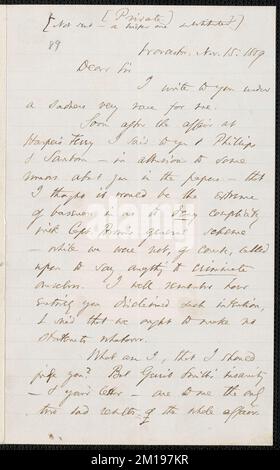 [Private]
[Not sent – a briefer one substituted]
89
Worcester, Nov. 15. 1859
Dear Sir
I write to you under
a sadness very rare for me.
Soon after the affair at
Harper's Ferry I said to you & Phillips
& Sanborn – in allusion to some
rumors about you in the papers – that
I thought it would be the extreme
of baseness in us to deny complicity
with Capt. Brown's general scheme
– while we were not, of course, called
upon to say anything to criminate
ourselves. I well remember how
entirely you disclaimed such intention,
& said that we ought to make no
statements whatever.
What am I, that I should
judge you? But Gerrit Smith's insanity
– & your letter – are to me the only
two sad results of the whole affair.
alamy
Image ID: 2M197KR
www.alamy.com